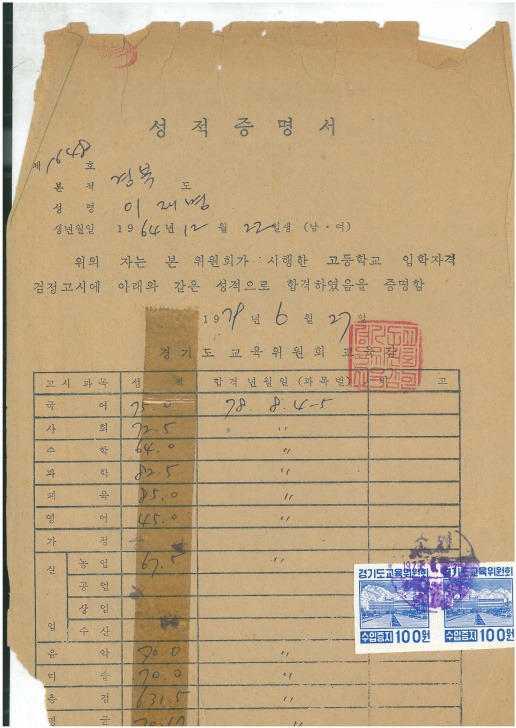 성적증명서
제 1648 호
본 적 경북 도
성 명 이재명
생년월일 1964년 12월 22일생 (남·여)
위의 자는 본 위원회가 시행한 고등학교 입학자격
검정고시에 아래와 같은 성적으로 합격하였음을 증명함
1979년 6월 27일
경기도교육위원회교육감
고시과목 성적 합격년월일(과목별) 비 고
국어 75.0 78. 8. 4-5
사회 72.5 〃
수학 64.0 〃
과학 82.5 〃
체육 85.0 〃
영어 45.0 〃
가정
실업 농업 67.5 〃
공업
상업
수산
음악 70.0 〃
미술 70.0 〃
총점 631.5 〃
평균
경기도교육위원회
수입증지 100원
경기도교육위원회
수입증지 100원